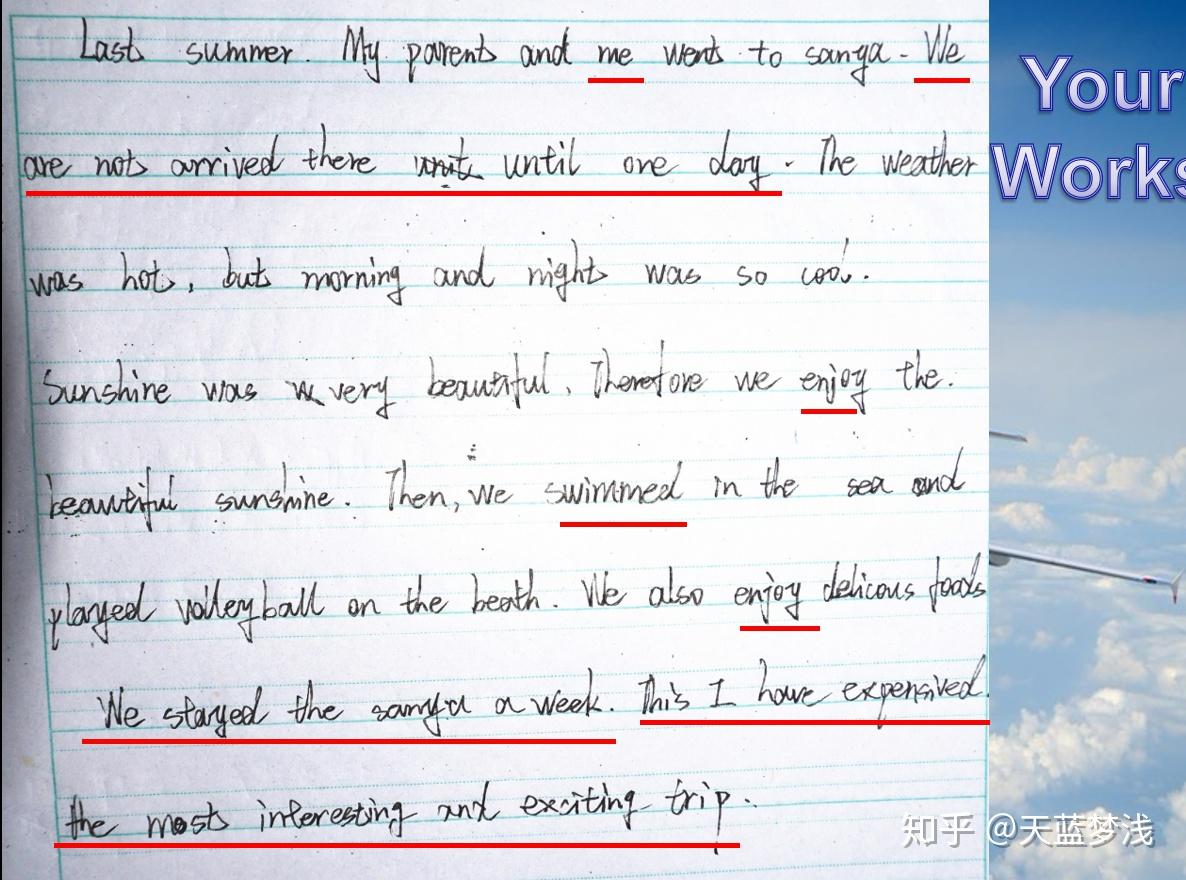 Last summer. My parents and me went to sanya. We
are not arrived there until one day. The weather
was hot, but morning and night was so cool.
Sunshine was very beautiful. Therefore we enjoy the.
beautiful sunshine. Then, we swimmed in the sea and
played volleyball on the beath. We also enjoy delicous foods
We stayed the sanya a week. This I have expensived.
the most interesting and exciting trip.
Your
Works
知乎 @天蓝梦浅